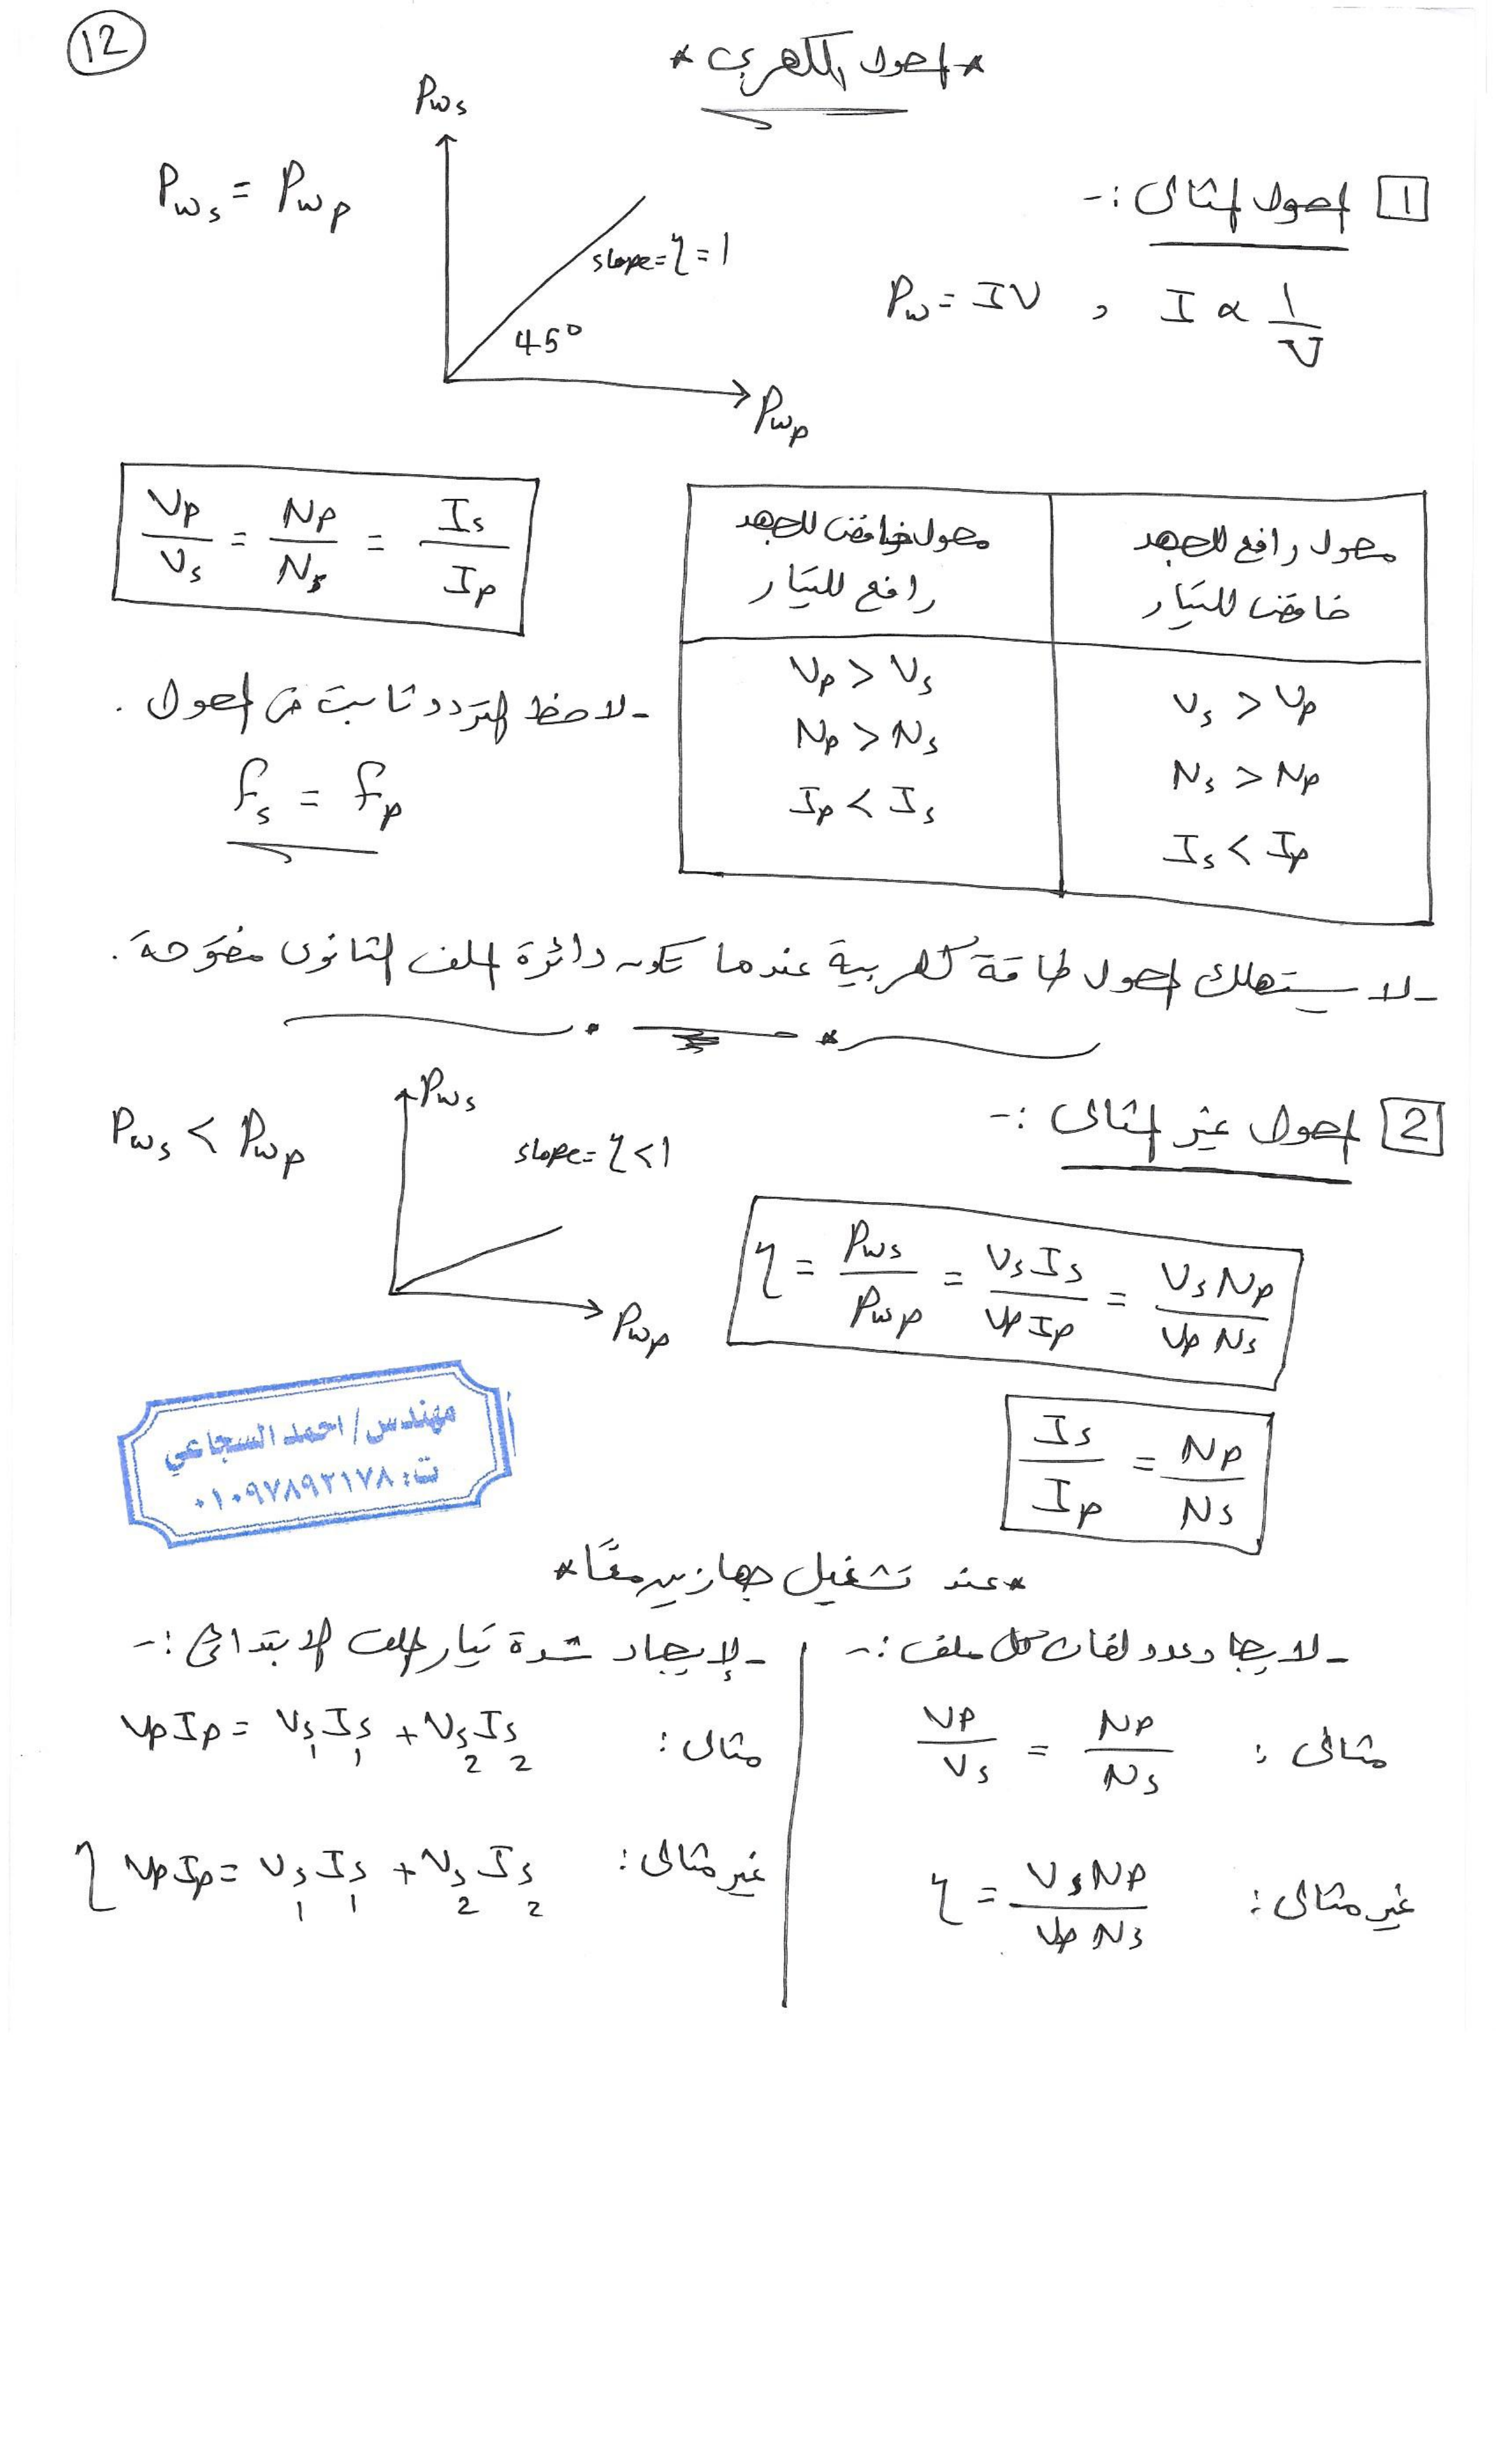 12
* المحول الكهربى *
1 المحول المثالى :-
Pw = IV , I ∝ 1/V
Pws = Pwp
Pws
slope = η = 1
45°
Pwp
Vp/Vs = Np/Ns = Is/Ip
محول رافع للجهد
خافض للتيار
Vs > Vp
Ns > Np
Is < Ip
محول خافض للجهد
رافع للتيار
Vp > Vs
Np > Ns
Ip < Is
- لاحظ التردد ثابت فى المحول .
fs = fp
- لا يستهلك المحول طاقة كهربية عندما تكون دائرة الملف الثانوى مفتوحة .
2 المحول غير المثالى :-
Pws < Pwp
Pws
slope = η < 1
Pwp
η = Pws/Pwp = VsIs/VpIp = VsNp/VpNs
Is/Ip = Np/Ns
مهندس/ احمد السجاعي
ت: ٠١٠٩٧٨٩٢١٧٨
* عند تشغيل جهازين معًا *
- لايجاد عدد لفات كل ملف :-
مثالى : Vp/Vs = Np/Ns
غير مثالى : η = VsNp/VpNs
- لإيجاد شدة تيار الملف الابتدائى :-
مثالى : VpIp = Vs1Is1 + Vs2Is2
غير مثالى : η VpIp = Vs1Is1 + Vs2Is2